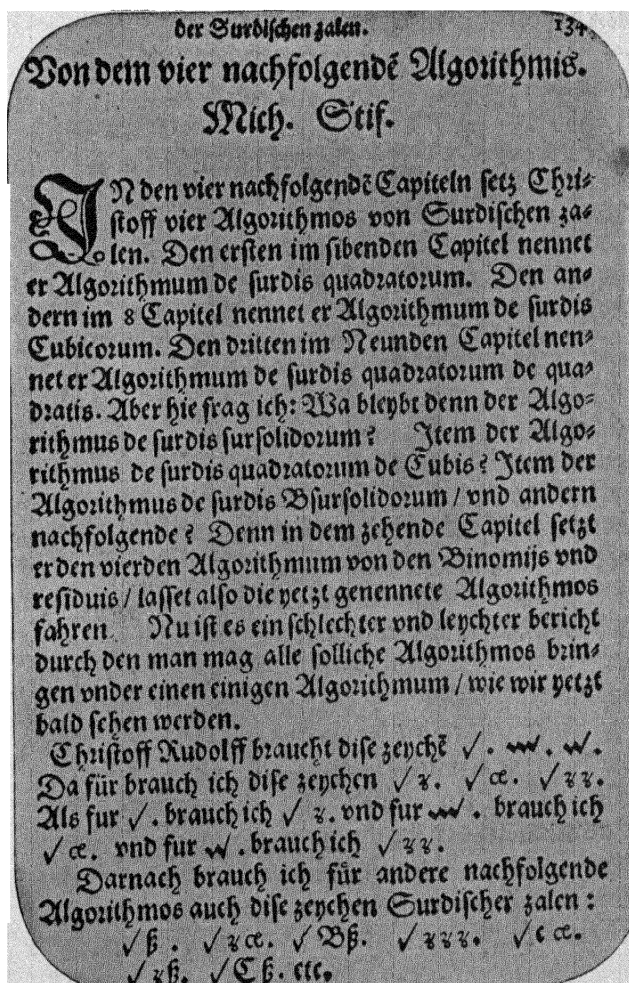 der Surdischen zalen. 134
Von dem vier nachfolgendẽ Algorithmis.
Mich. Stif.
IN den vier nachfolgendẽ Capiteln setz Chri⸗
stoff vier Algorithmos von Surdischen za⸗
len. Den ersten im sibenden Capitel nennet
er Algorithmum de surdis quadratorum. Den an⸗
dern im 8 Capitel nennet er Algorithmum de surdis
Cubicorum. Den dritten im Neunden Capitel nen⸗
net er Algorithmum de surdis quadratorum de qua⸗
dratis. Aber hie frag ich: Wa bleybt denn der Algo⸗
rithmus de surdis sursolidorum? Item der Algo⸗
rithmus de surdis quadratorum de Cubis? Item der
Algorithmus de surdis Bsursolidorum / vnd andern
nachfolgende? Denn in dem zehende Capitel setzt
er den vierden Algorithmum von den Binomijs vnd
residuis / lasset also die yetzt genennete Algorithmos
fahren. Nu ist es ein schlechter vnd leychter bericht
durch den man mag alle solliche Algorithmos brin⸗
gen vnder einen einigen Algorithmum / wie wir yetzt
bald sehen werden.
Christoff Rudolff braucht dise zeychẽ √ . . .
Da für brauch ich dise zeychen √ʒ. √ce. √ʒʒ.
Als fur √ . brauch ich √ ʒ. vnd fur . brauch ich
√ce. vnd fur . brauch ich √ʒʒ.
Darnach brauch ich für andere nachfolgende
Algorithmos auch dise zeychen Surdischer zalen :
√ß . √ʒce. √Bß. √ʒʒʒ. √c ce.
√ʒß. √Cß. etc.